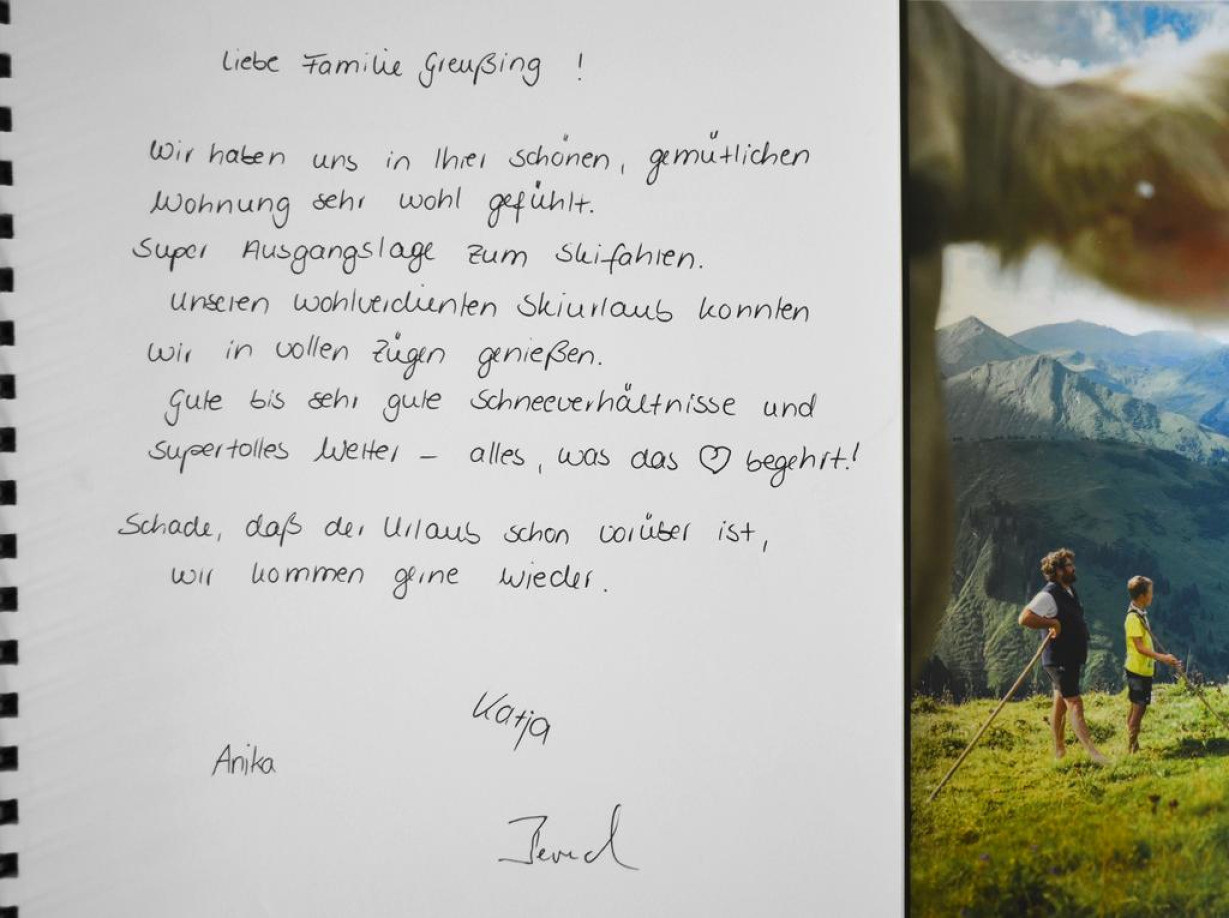 Liebe Familie Greußing !
Wir haben uns in Ihrer schönen, gemütlichen
Wohnung sehr wohl gefühlt.
Super Ausgangslage zum Skifahren.
Unseren wohlverdienten Skiurlaub konnten
wir in vollen Zügen genießen.
Gute bis sehr gute Schneeverhältnisse und
supertolles Wetter – alles, was das ♡ begehrt!
Schade, daß der Urlaub schon vorüber ist,
wir kommen gerne wieder.
Katja
Anika